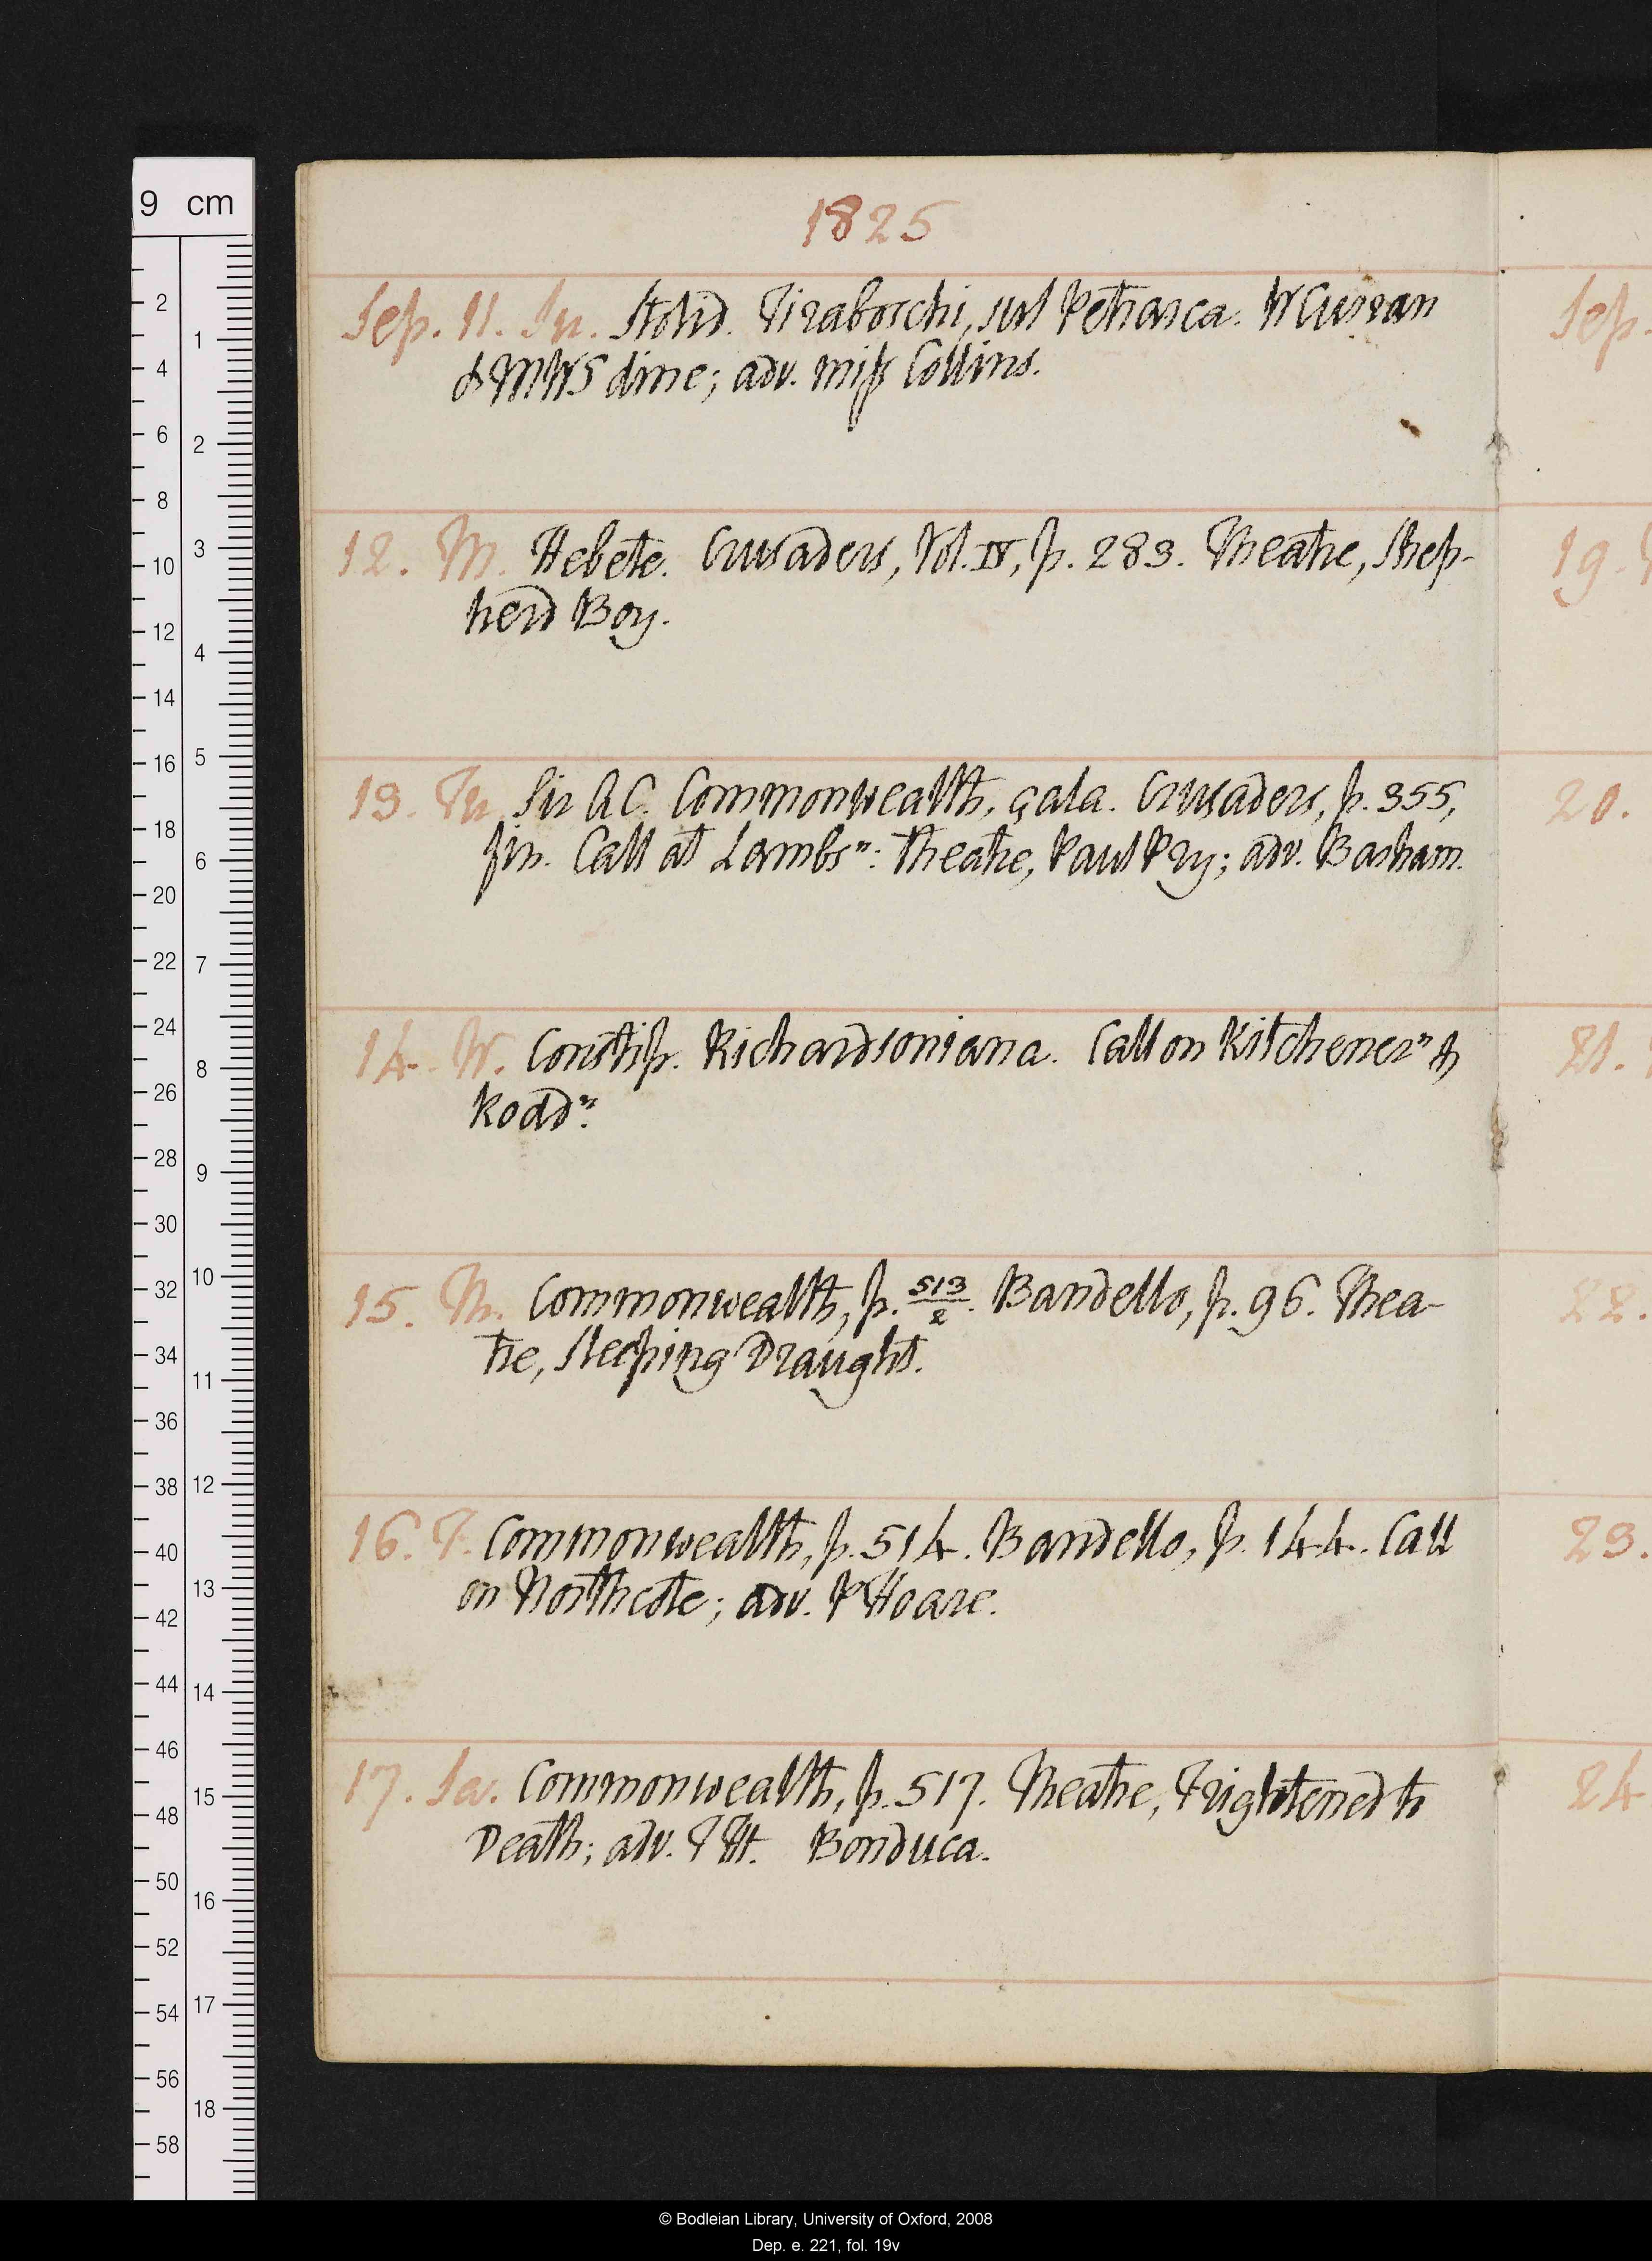 9 cm
1825
Sep. 11. Su. Stolid. Tiraboschi, sul Petrarca. W Curran
& MWS dine; adv. miss Collins.
12. M. Hebete. Crusaders, Vol. IV, p. 283. Theatre, Shep-
herd Boy.
13. Tu. Sir A C. Commonwealth, çala. Crusaders, p. 355,
fin. Call at Lambs": theatre, Paul Pry; adv. Basham.
14. W. Constip. Richardsoniana. Call on Kitchener" &
Rodd":
15. Th. Commonwealth, p. 513/2. Bandello, p. 96. Thea-
tre, Sleeping Draught.
16. F. Commonwealth, p. 514. Bandello, p. 144. Call
on Northcote; adv. P Hoare.
17. Sa. Commonwealth, p. 517. Theatre, Frightened to
Death; adv. Bonduca.
Sep.
19.
20.
21.
22.
23.
24
© Bodleian Library, University of Oxford, 2008
Dep. e. 221, fol. 19v